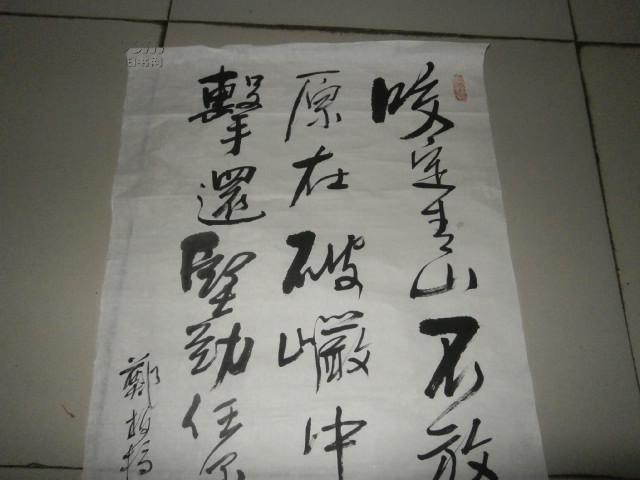 咬定青山不放
原在破巖中
擊還堅勁任尔
鄭板橋